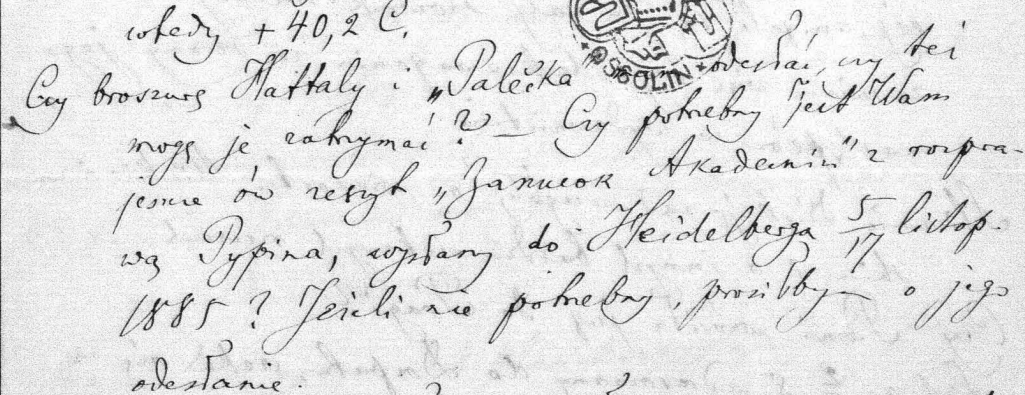 wtedy + 40,2 C.
Czy broszurę Hattaly i „Palečka" odesłać, czy też
mogę je zatrzymać? — Czy potrzebny jest Wam
jeszcze ów zeszyt „Записок Академии" z rozpra-
wą Pypina, wysłany do Heidelberga 5/17 listop.
1885? Jeżeli nie potrzebny, prosiłbym o jego
odesłanie.
OSSOLIN